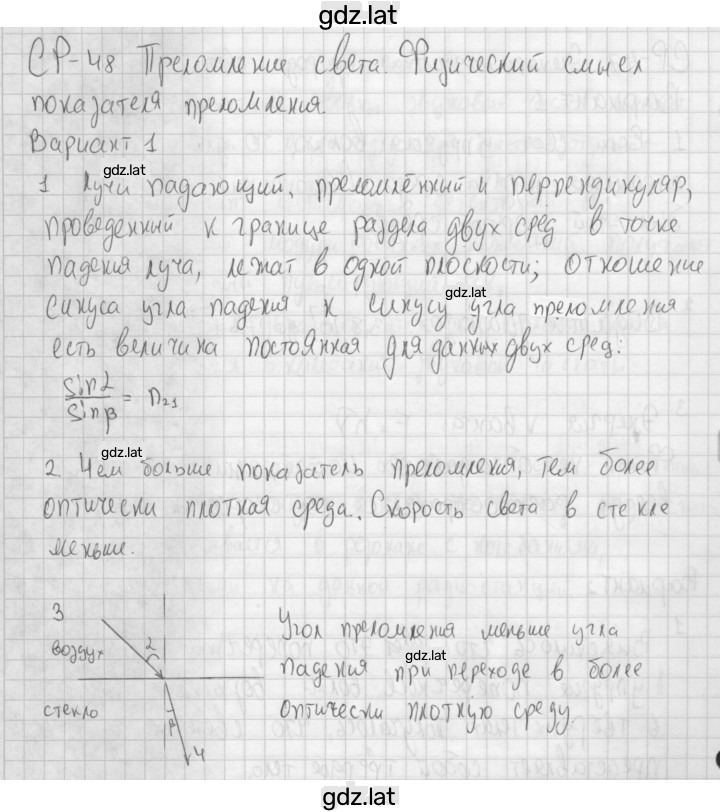 gdz.lat
СР-48 Преломление света. Физический смысл
показателя преломления.
Вариант 1
gdz.lat
1 Лучи падающий, преломлённый и перпендикуляр,
проведенный к границе раздела двух сред в точке
падения луча, лежат в одной плоскости; отношение
gdz.lat
синуса угла падения к синусу угла преломления
есть величина постоянная для данных двух сред:
sin α / sin β = n₂₁
gdz.lat
2. Чем больше показатель преломления, тем более
оптически плотная среда. Скорость света в стекле
меньше.
gdz.lat
3
воздух
α
стекло
β
Угол преломления меньше угла
gdz.lat
падения при переходе в более
оптически плотную среду
gdz.lat